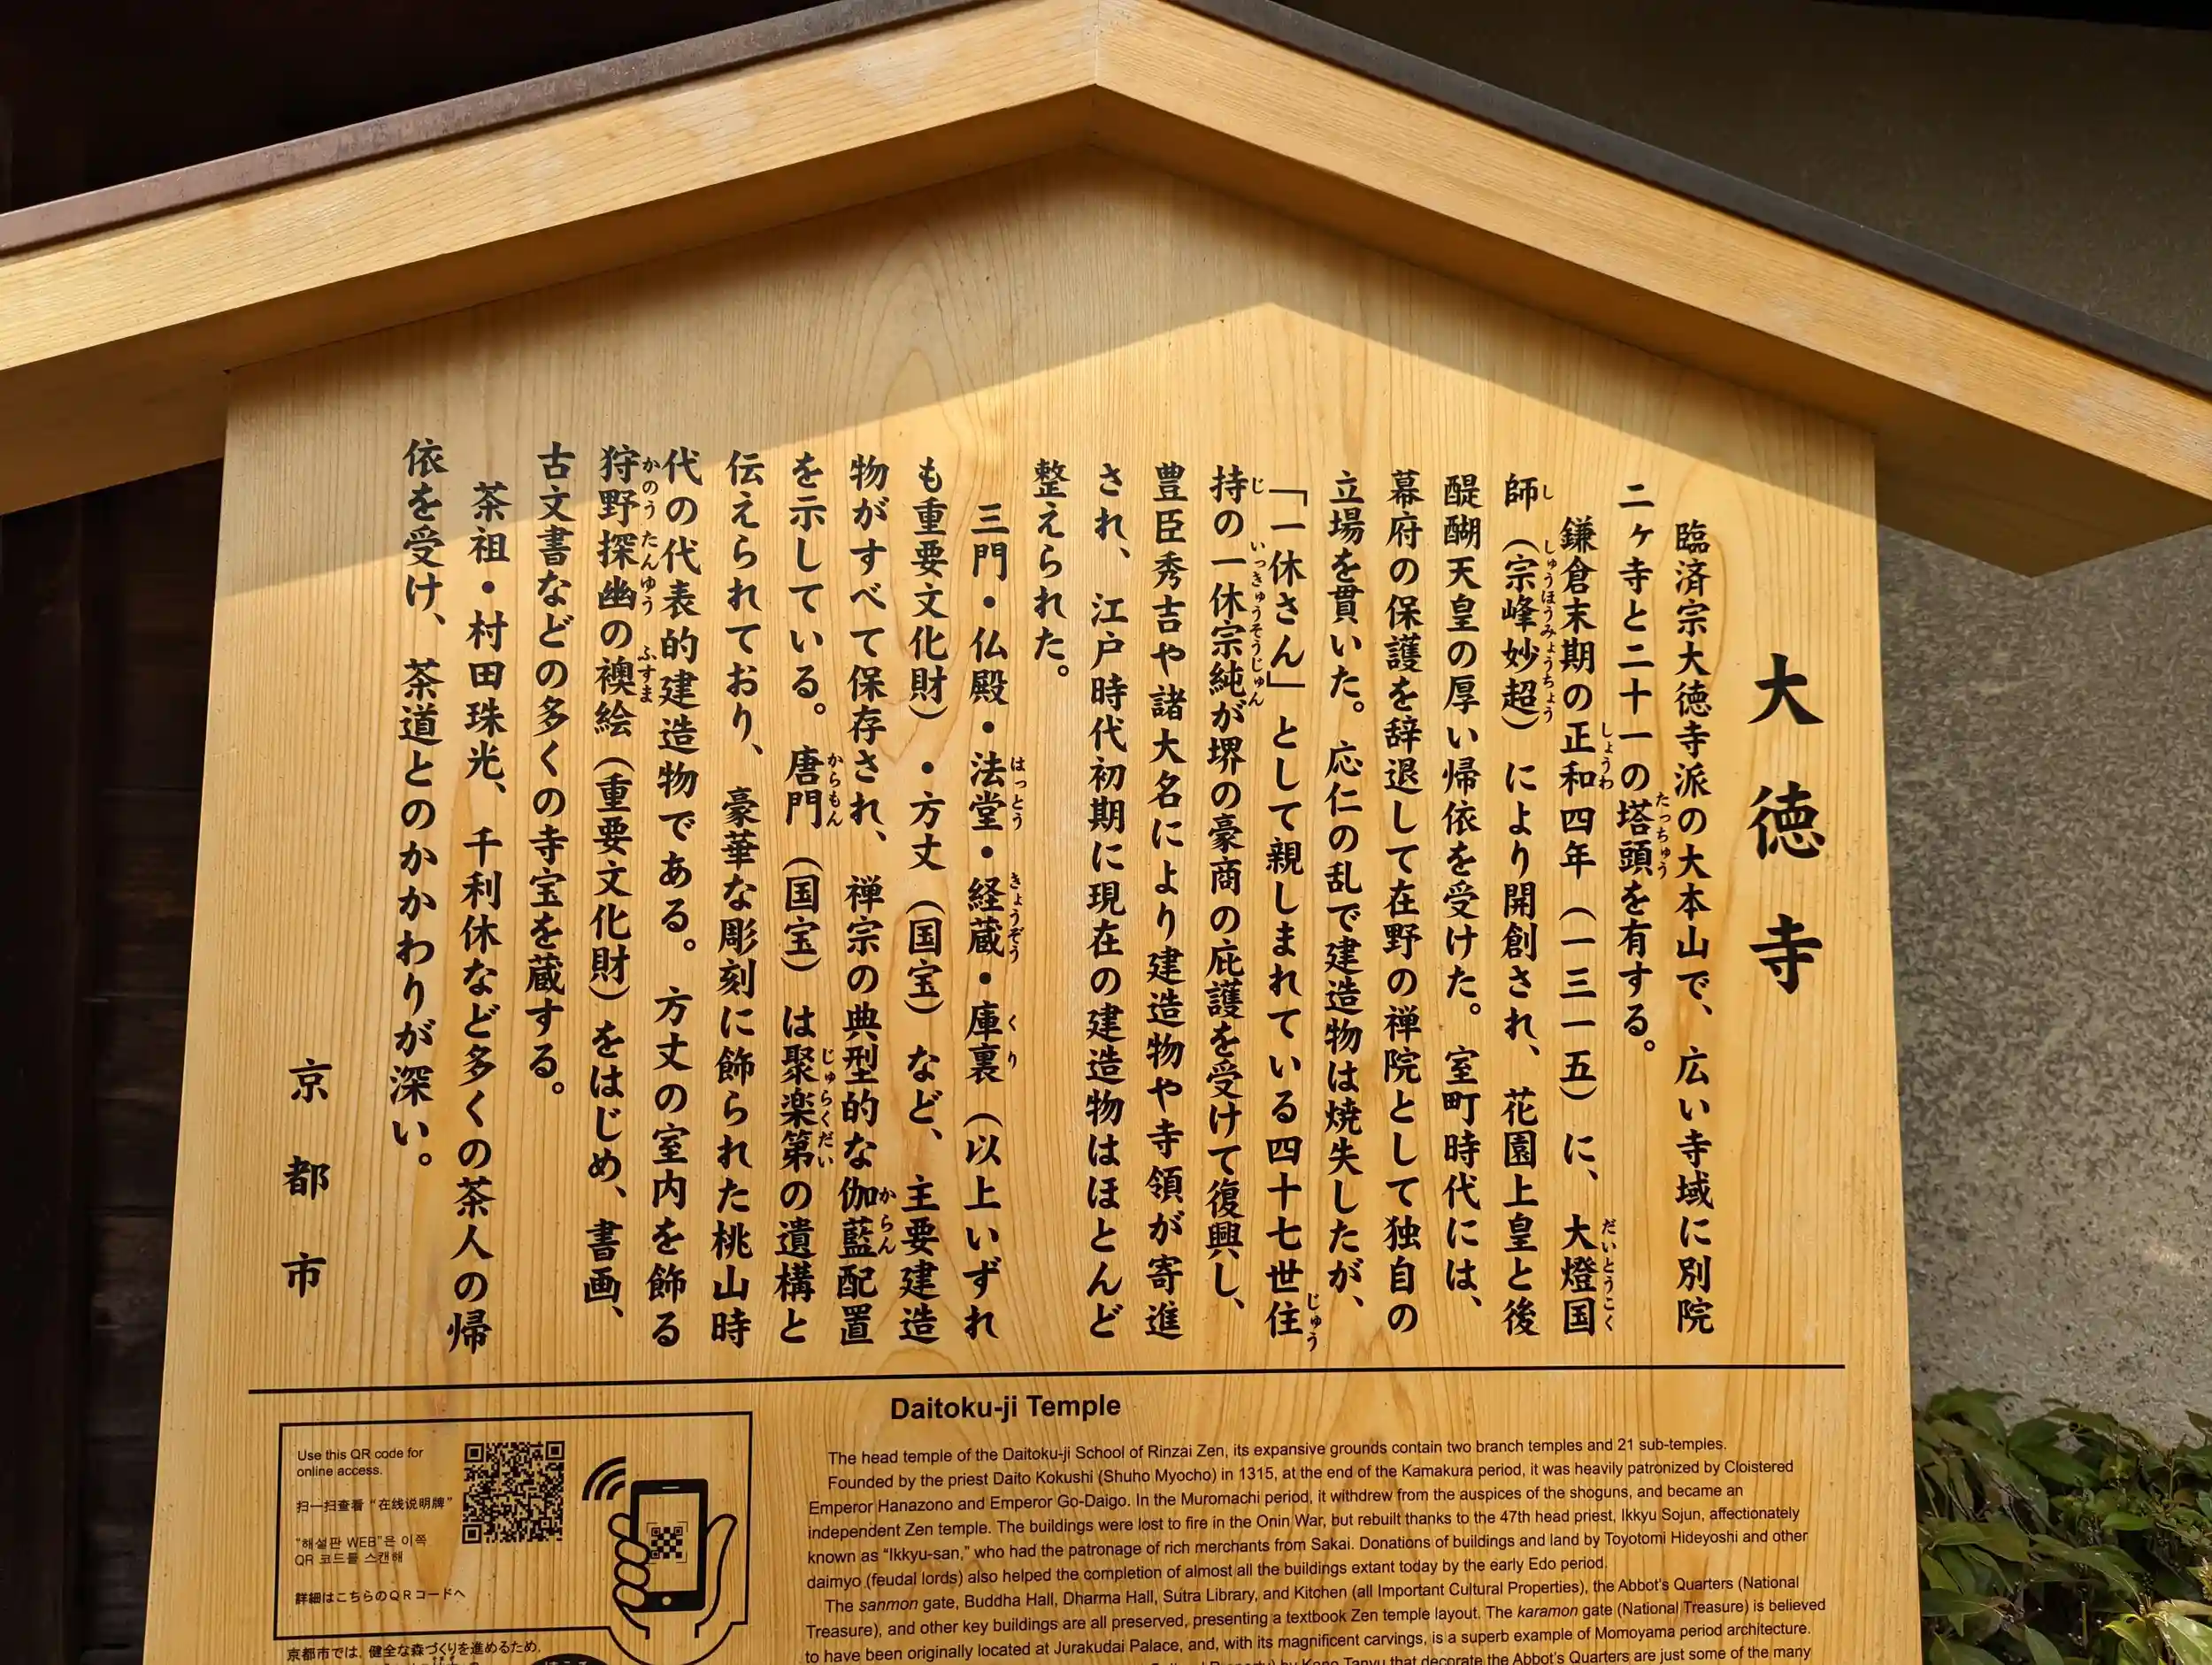 大徳寺
臨済宗大徳寺派の大本山で、広い寺域に別院
二ヶ寺と二十一の塔頭を有する。
たっちゅう
鎌倉末期の正和四年（一三一五）に、大燈国
しょうわ
だいとうこく
師（宗峰妙超）により開創され、花園上皇と後
し
しゅうほうみょうちょう
醍醐天皇の厚い帰依を受けた。室町時代には、
幕府の保護を辞退して在野の禅院として独自の
立場を貫いた。応仁の乱で建造物は焼失したが、
「一休さん」として親しまれている四十七世住
じゅう
持の一休宗純が堺の豪商の庇護を受けて復興し、
じ
いっきゅうそうじゅん
豊臣秀吉や諸大名により建造物や寺領が寄進
され、江戸時代初期に現在の建造物はほとんど
整えられた。
三門・仏殿・法堂・経蔵・庫裏（以上いずれ
はっとう
きょうぞう
くり
も重要文化財）・方丈（国宝）など、主要建造
物がすべて保存され、禅宗の典型的な伽藍配置
からん
を示している。唐門（国宝）は聚楽第の遺構と
からもん
じゅらくだい
伝えられており、豪華な彫刻に飾られた桃山時
代の代表的建造物である。方丈の室内を飾る
狩野探幽の襖絵（重要文化財）をはじめ、書画、
かのうたんゆう
ふすま
古文書などの多くの寺宝を蔵する。
茶祖・村田珠光、千利休など多くの茶人の帰
依を受け、茶道とのかかわりが深い。
京都市
Daitoku-ji Temple
The head temple of the Daitoku-ji School of Rinzai Zen, its expansive grounds contain two branch temples and 21 sub-temples.
Founded by the priest Daito Kokushi (Shuho Myocho) in 1315, at the end of the Kamakura period, it was heavily patronized by Cloistered
Emperor Hanazono and Emperor Go-Daigo. In the Muromachi period, it withdrew from the auspices of the shoguns, and became an
independent Zen temple. The buildings were lost to fire in the Onin War, but rebuilt thanks to the 47th head priest, Ikkyu Sojun, affectionately
known as “Ikkyu-san,” who had the patronage of rich merchants from Sakai. Donations of buildings and land by Toyotomi Hideyoshi and other
daimyo (feudal lords) also helped the completion of almost all the buildings extant today by the early Edo period.
The sanmon gate, Buddha Hall, Dharma Hall, Sutra Library, and Kitchen (all Important Cultural Properties), the Abbot’s Quarters (National
Treasure), and other key buildings are all preserved, presenting a textbook Zen temple layout. The karamon gate (National Treasure) is believed
to have been originally located at Jurakudai Palace, and, with its magnificent carvings, is a superb example of Momoyama period architecture.
by Kano Tanyu that decorate the Abbot’s Quarters are just some of the many
Use this QR code for
online access.
扫一扫查看 “在线说明牌”
“해설판 WEB”은 이쪽
QR 코드를 스캔해
詳細はこちらのＱＲコードへ
京都市では、健全な森づくりを進めるため、